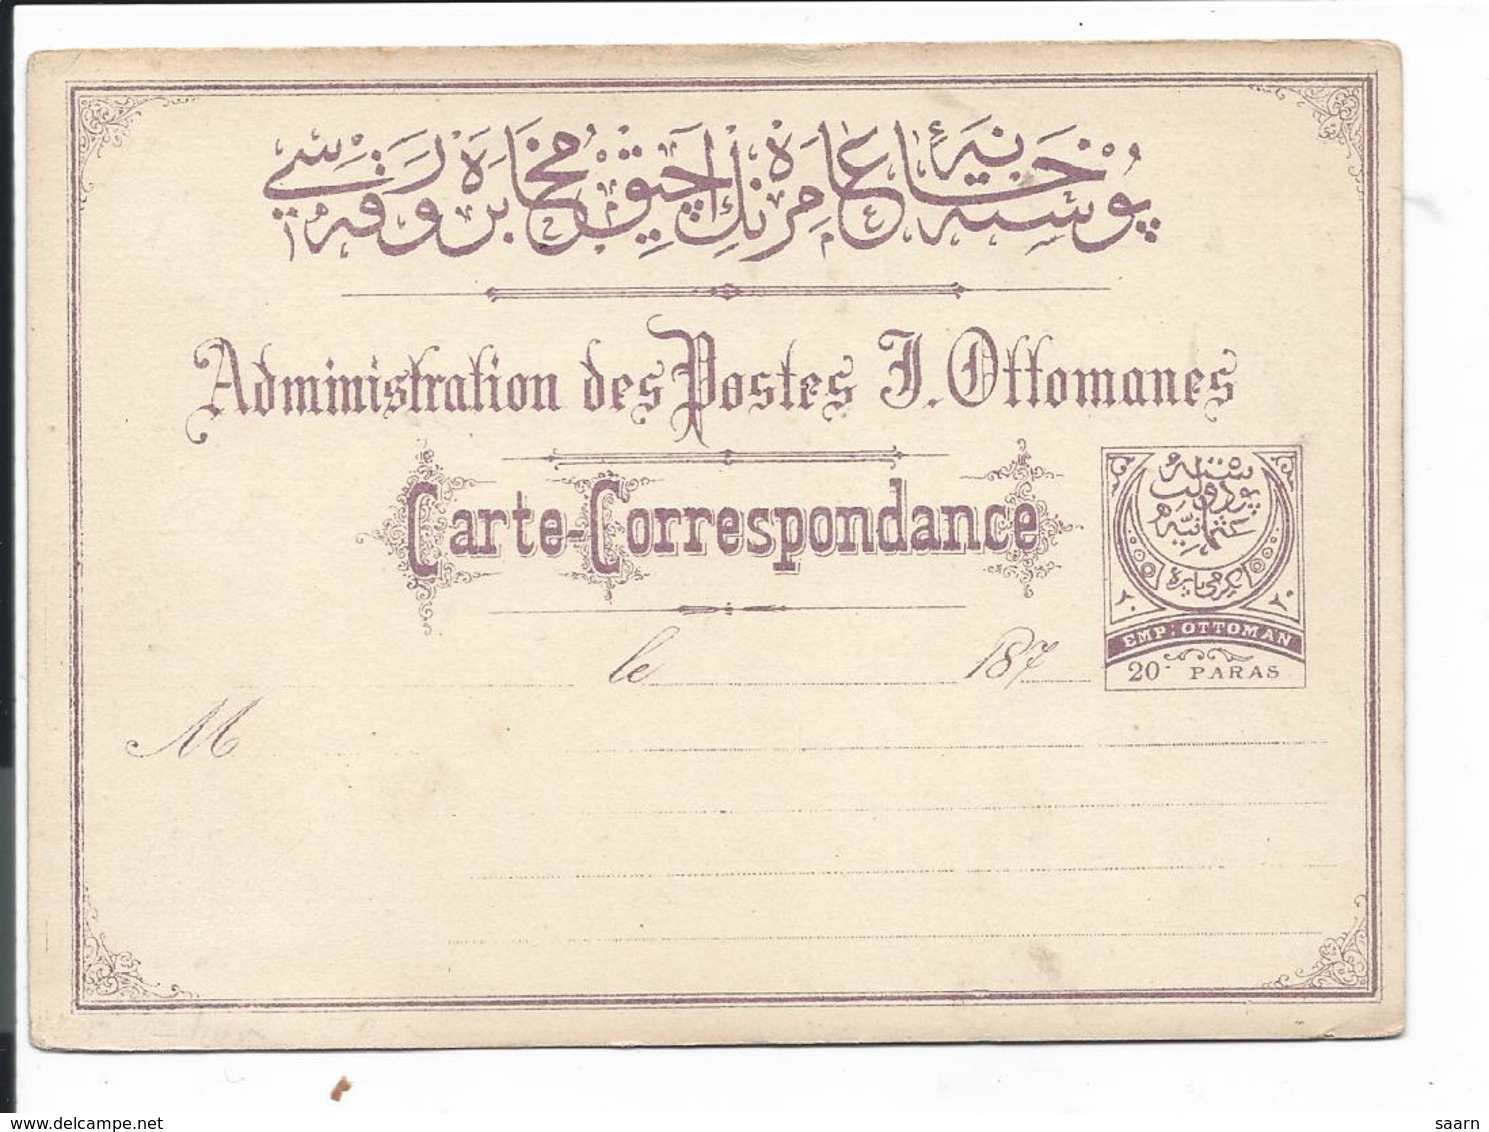 پوسته خانهٔ عامره نك آچیق مخابره ورقه سی
Administration des Postes I. Ottomanes
Carte-Correspondance
le 187
M
پوسته دولت عثمانیه
یكرمی پاره
٢٠ ٢٠
EMP: OTTOMAN
20 PARAS
www.delcampe.net
saarn